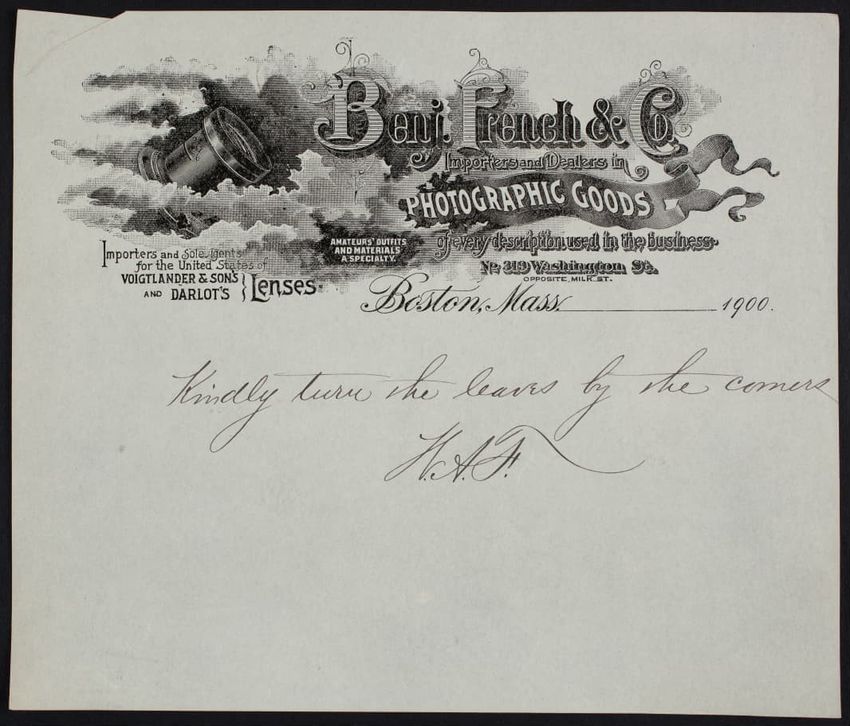 Benj. French & Co.
Importers and Dealers in
PHOTOGRAPHIC GOODS
of every description used in the business
No. 319 Washington St.
OPPOSITE MILK ST.
AMATEURS' OUTFITS
AND MATERIALS
A SPECIALTY.
Importers and Sole Agents
for the United States of
VOIGTLANDER & SON'S
AND DARLOT'S
Lenses.
Boston, Mass. 1900.
Kindly turn the leaves by the corners
H.A.F.